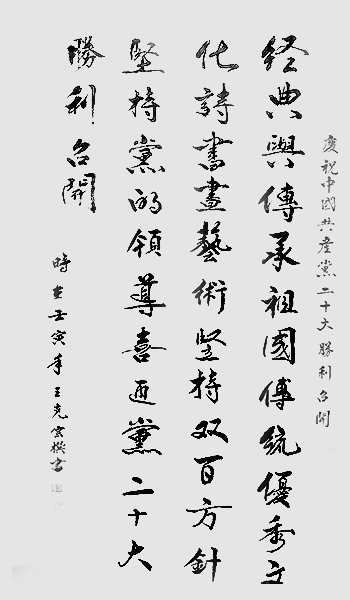 慶祝中國共產黨二十大勝利召開
经典與傳承祖國傳統優秀文
化詩書畫藝術堅持双百方針
堅持黨的領導喜迎黨二十大
勝利召開
時在壬寅年王克宏撰書